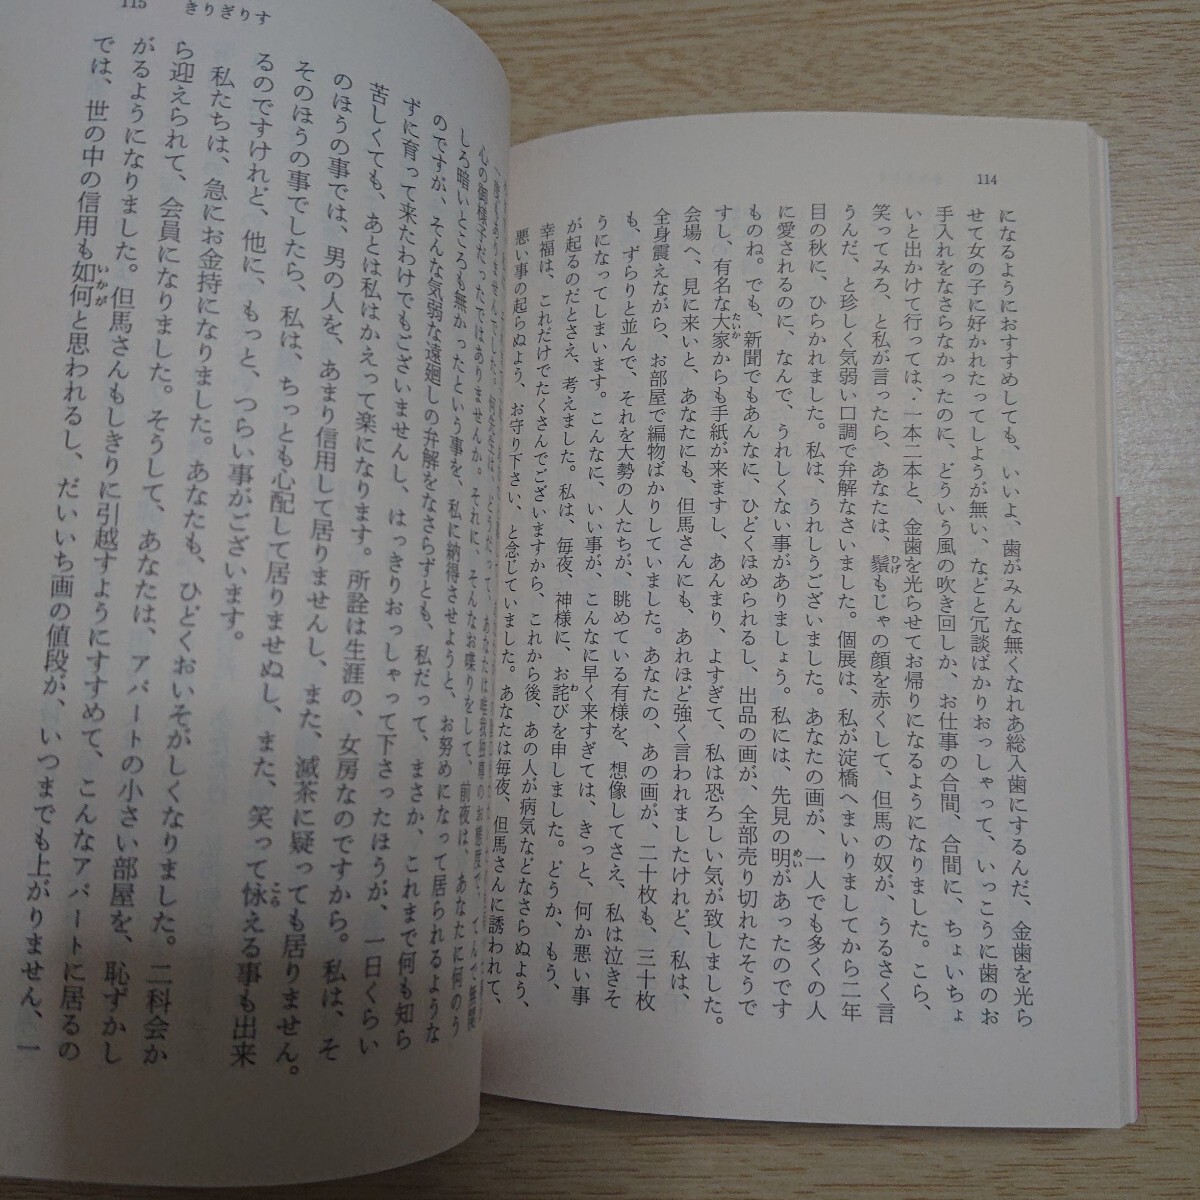 114
になるようにおすすめしても、いいよ、歯がみんな無くなれあ総入歯にするんだ、金歯を光ら
せて女の子に好かれたってしようが無い、などと冗談ばかりおっしゃって、いっこうに歯のお
手入れをなさらなかったのに、どういう風の吹き回しか、お仕事の合間、合間に、ちょいちょ
いと出かけて行っては、一本二本と、金歯を光らせてお帰りになるようになりました。こら、
笑ってみろ、と私が言ったら、あなたは、鬚もじゃの顔を赤くして、但馬の奴が、うるさく言
うんだ、と珍しく気弱い口調で弁解なさいました。個展は、私が淀橋へまいりましてから二年
目の秋に、ひらかれました。私は、うれしうございました。あなたの画が、一人でも多くの人
に愛されるのに、なんで、うれしくない事がありましょう。私には、先見の明があったのです
ものね。でも、新聞でもあんなに、ひどくほめられるし、出品の画が、全部売り切れたそうで
すし、有名な大家からも手紙が来ますし、あんまり、よすぎて、私は恐ろしい気が致しました。
会場へ、見に来いと、あなたにも、但馬さんにも、あれほど強く言われましたけれど、私は、
全身震えながら、お部屋で編物ばかりしていました。あなたの、あの画が、二十枚も、三十枚
も、ずらりと並んで、それを大勢の人たちが、眺めている有様を、想像してさえ、私は泣きそ
うになってしまいます。こんなに、いい事が、こんなに早く来すぎては、きっと、何か悪い事
が起るのだとさえ、考えました。私は、毎夜、神様に、お詫びを申しました。どうか、もう、
幸福は、これだけでたくさんでございますから、これから後、あの人が病気などなさらぬよう、
悪い事の起らぬよう、お守り下さい、と念じていました。あなたは毎夜、但馬さんに誘われて、
115 きりぎりす
心の御様子だったではありませんか。それに、そんなお喋りをして、前夜は、あなたに何のう
しろ暗いところも無かったという事を、私に納得させようと、お努めになって居られるような
のですが、そんな気弱な遠廻しの弁解をなさらずとも、私だって、まさか、これまで何も知ら
ずに育って来たわけでもございませんし、はっきりおっしゃって下さったほうが、一日くらい
苦しくても、あとは私はかえって楽になります。所詮は生涯の、女房なのですから。私は、そ
のほうの事では、男の人を、あまり信用して居りませんし、また、滅茶に疑っても居りません。
そのほうの事でしたら、私は、ちっとも心配して居りませぬし、また、笑って怺える事も出来
るのですけれど、他に、もっと、つらい事がございます。
私たちは、急にお金持になりました。あなたも、ひどくおいそがしくなりました。二科会か
ら迎えられて、会員になりました。そうして、あなたは、アパートの小さい部屋を、恥ずかし
がるようになりました。但馬さんもしきりに引越すようにすすめて、こんなアパートに居るの
では、世の中の信用も如何と思われるし、だいいち画の値段が、いつまでも上がりません、一